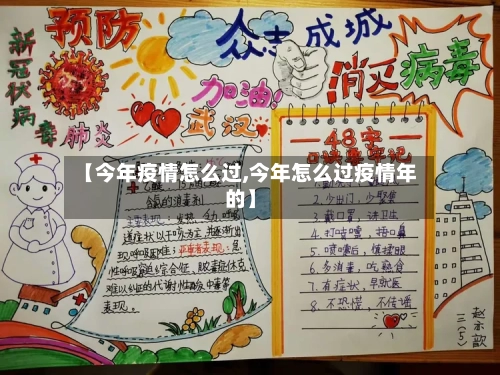 新冠状病毒肺炎
预防
众志成城
消灭病毒
加油!
武汉
48字
【今年疫情怎么过,今年怎么过疫情年的】
氯的消毒剂
主要表现:发热、乏力、咳
道症状以干咳为主,并逐渐出
现呼吸困难;严重者表现:急
性呼吸窘迫综合征、脓毒症休克
难以纠正的代谢性酸中毒
表现。
2.少出门,少聚集
3.戴口罩,讲卫生
4.打喷嚏,捂口鼻
5.喷嚏后,慎揉眼
6.多消毒,吃熟食
7.有症状,早就医
8.不恐慌,不传谣
三(5)